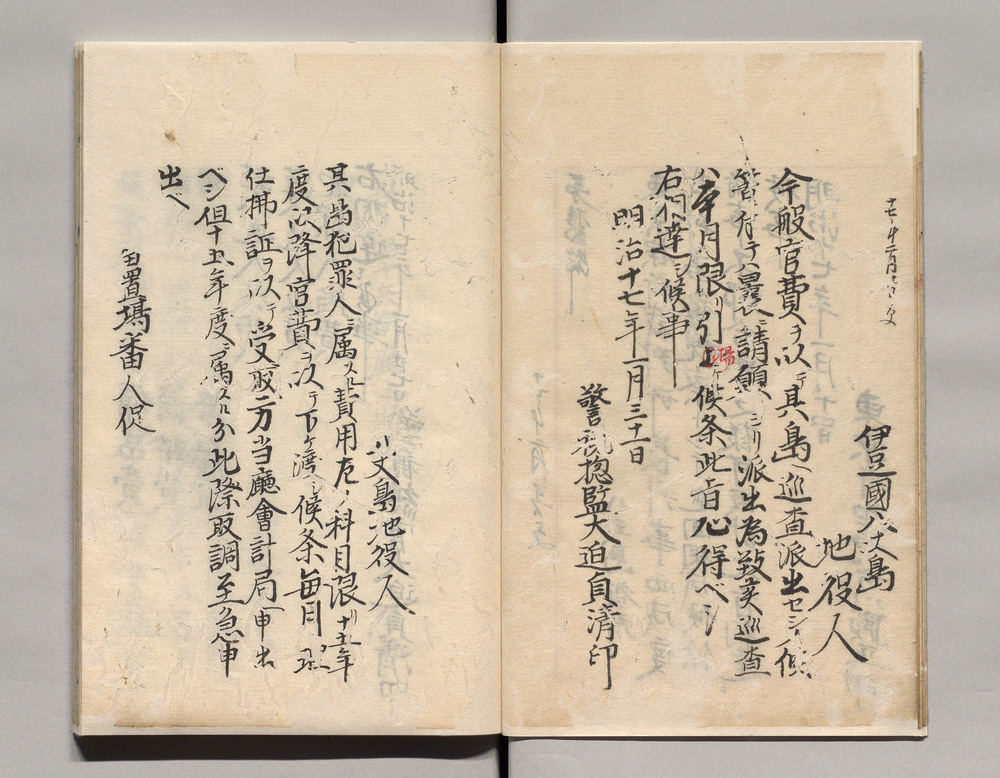 伊豆國八丈島
地役人
今般官費ヲ以テ其島ヘ巡査派出セシ儀
請願ニヨリ派出為致候巡査
ハ本月限リ引上ケ候条此旨心得ベシ
場
右相達シ候事
明治十七年一月三十一日
警視惣監大迫貞清印
八丈島地役人
其島犯罪人ニ属スル費用左ノ科目限リ十五年
度以降官費ヲ以テ下ケ渡シ候条毎月
仕拂証ヲ以テ受取方当廳會計局ヘ申出
ベシ但十五年度ニ属スル分此際取調至急申
出ベシ
留置場番人